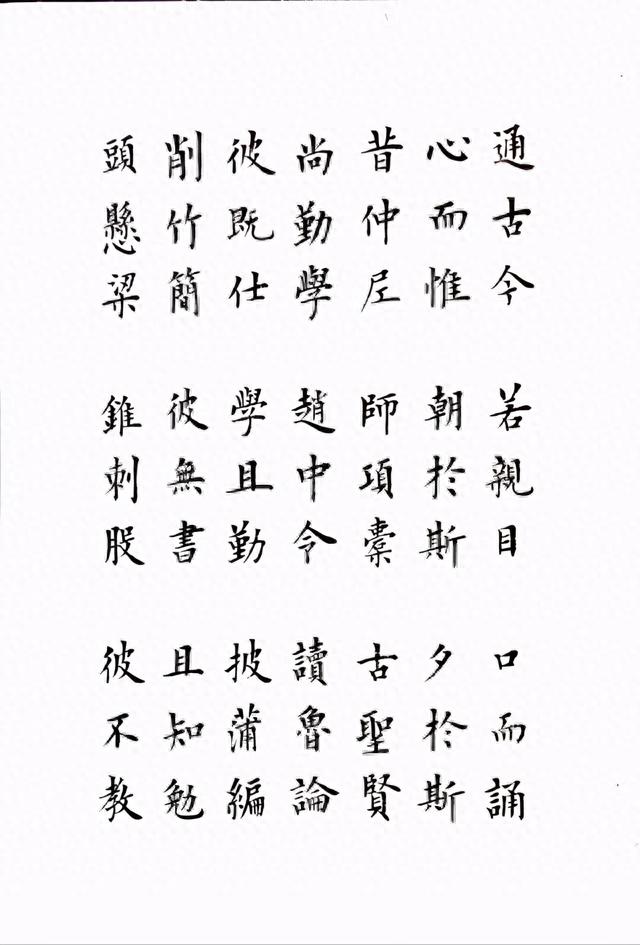 通古今 若親目 口而誦
心而惟 朝於斯 夕於斯
昔仲尼 師項橐 古聖賢
尚勤學 趙中令 讀魯論
彼既仕 學且勤 披蒲編
削竹簡 彼無書 且知勉
頭懸梁 錐刺股 彼不教